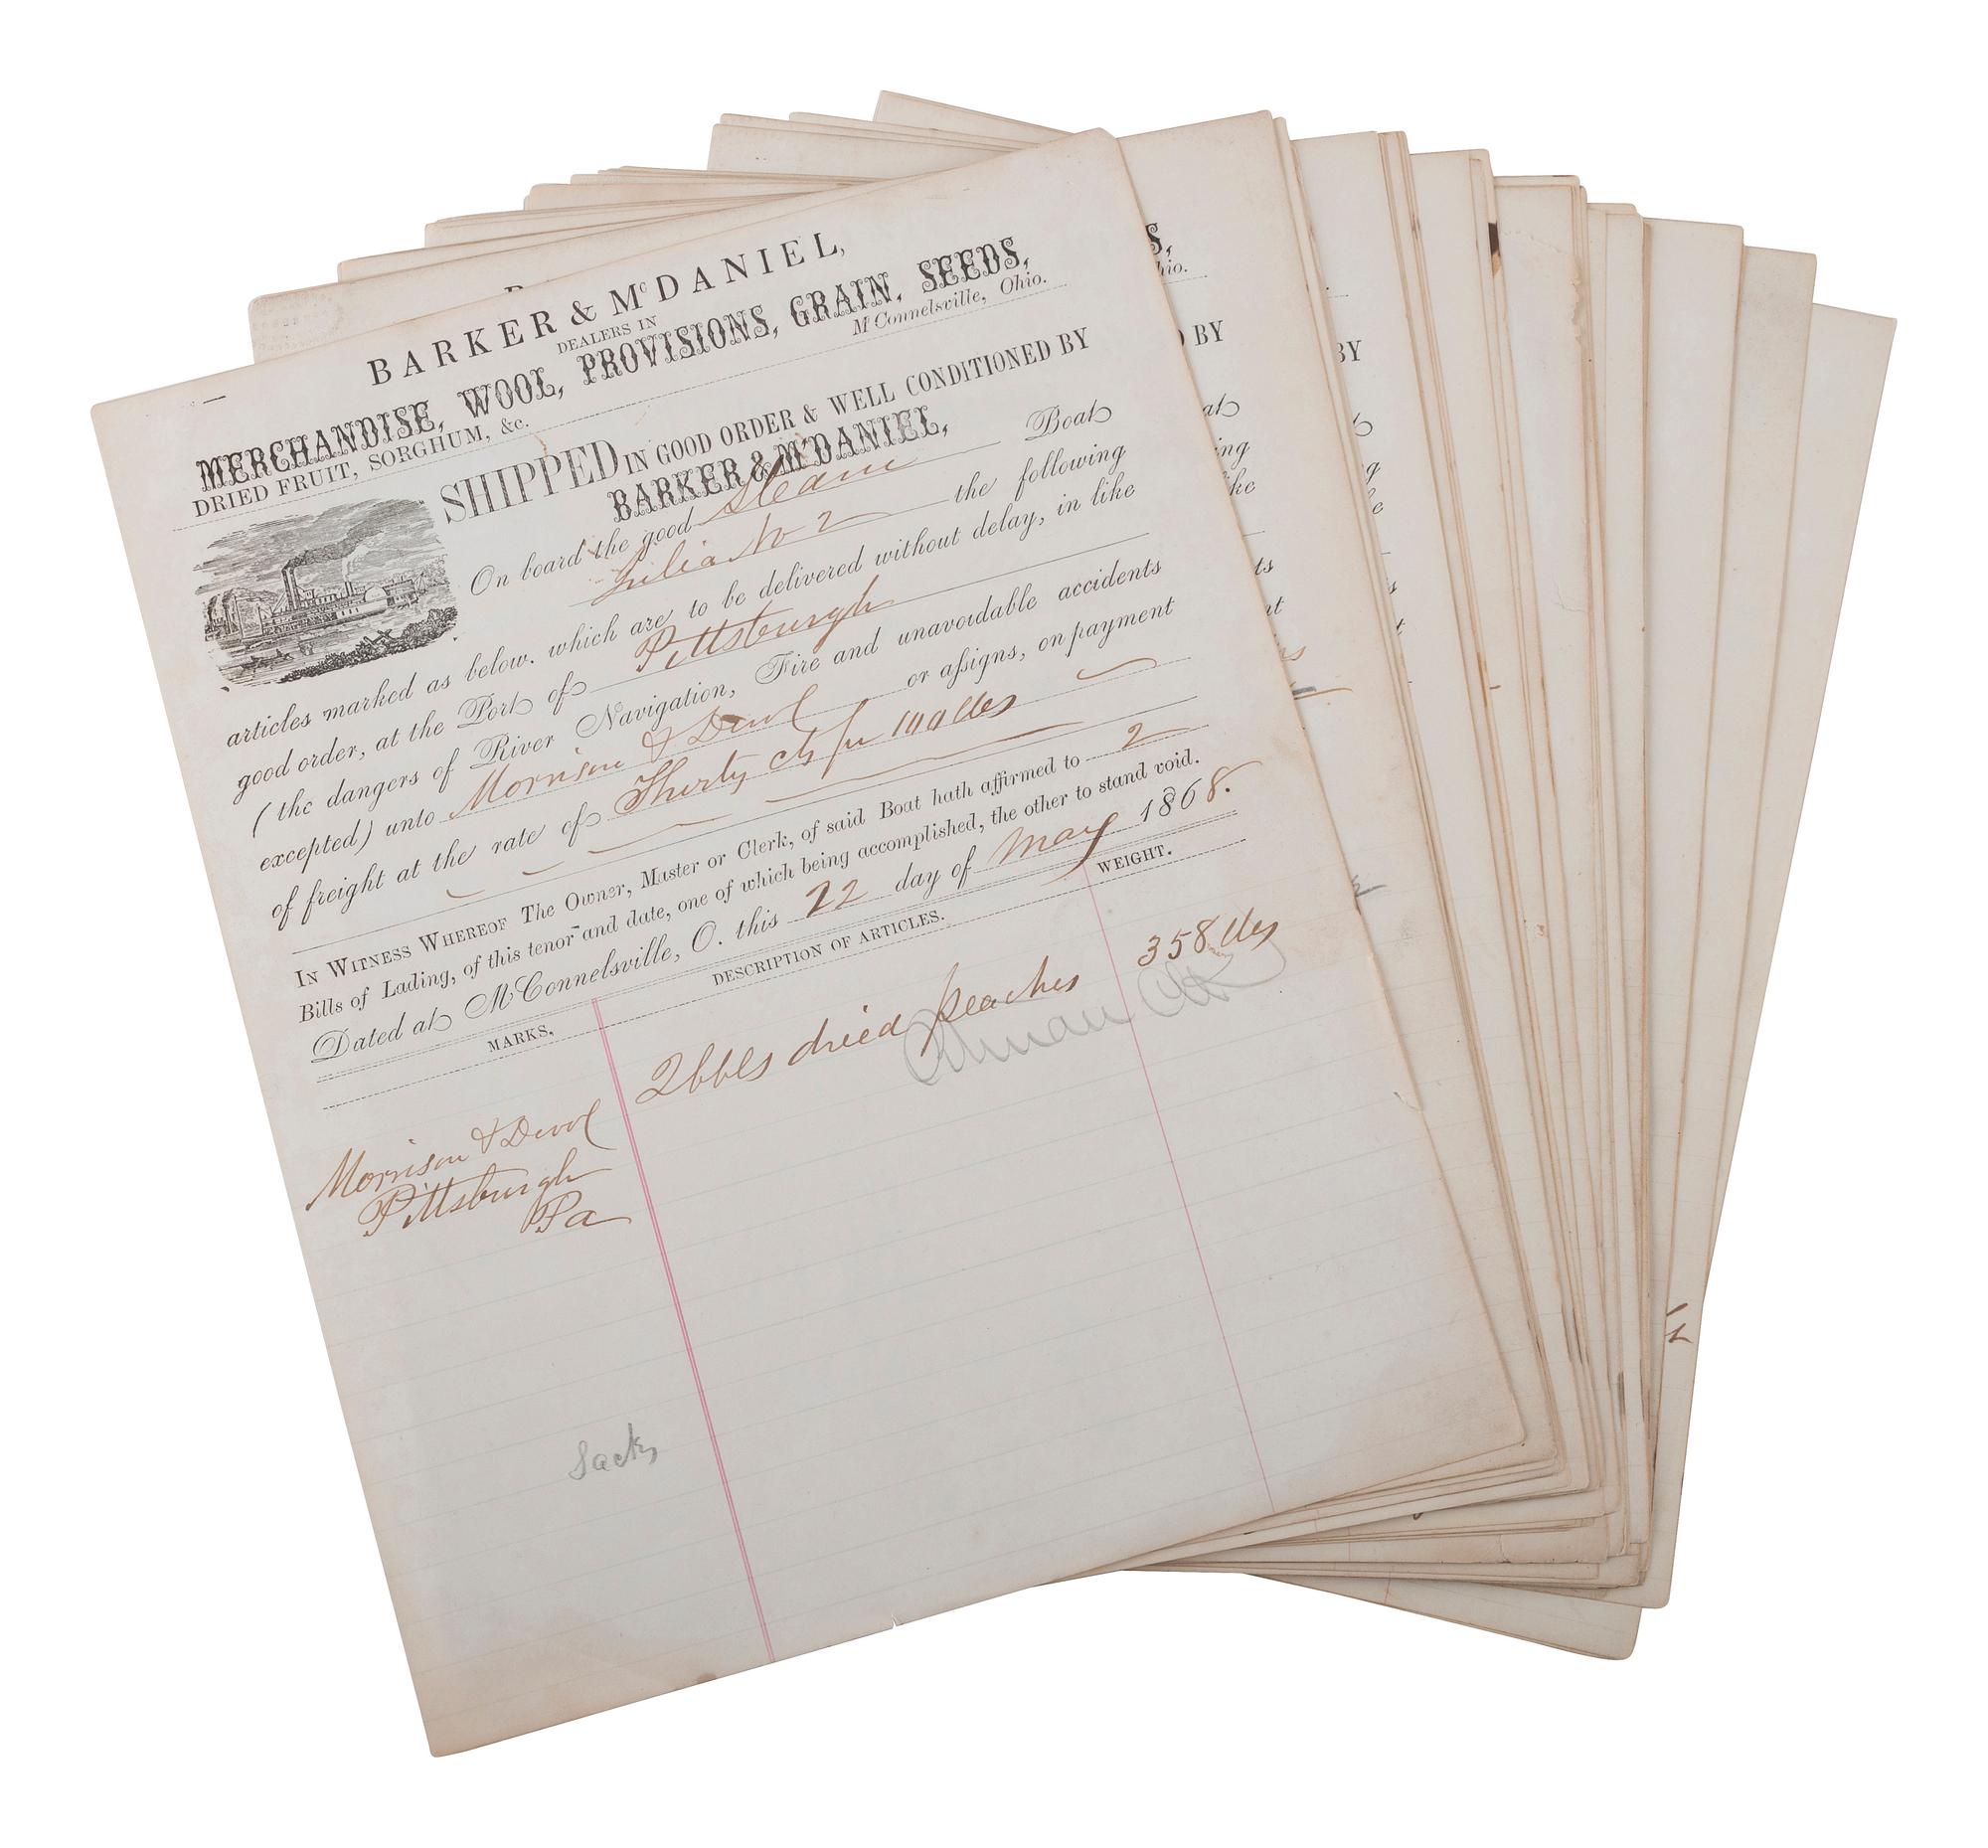 BARKER & McDANIEL,
DEALERS IN
MERCHANDISE, WOOL, PROVISIONS, GRAIN, SEEDS,
DRIED FRUIT, SORGHUM, &c.
McConnelsville, Ohio.
SHIPPED IN GOOD ORDER & WELL CONDITIONED BY
BARKER & McDANIEL,
On board the good Steam Boat
Julia No 2 the following
articles marked as below. which are to be delivered without delay, in like
good order, at the Port of Pittsburgh
(the dangers of River Navigation, Fire and unavoidable accidents
excepted) unto Morrison & Devol or assigns, on payment
of freight at the rate of Thirty cts pr 100 lbs
IN WITNESS WHEREOF The Owner, Master or Clerk, of said Boat hath affirmed to 2
Bills of Lading, of this tenor and date, one of which being accomplished, the other to stand void.
Dated at McConnelsville, O. this 22 day of May 1868.
MARKS. DESCRIPTION OF ARTICLES. WEIGHT.
2 bbls dried peaches 358 lbs
Morrison & Devol
Pittsburgh
Pa
Sacks
S,
hio.
BY
BY
at
ing
ike
ts
nt